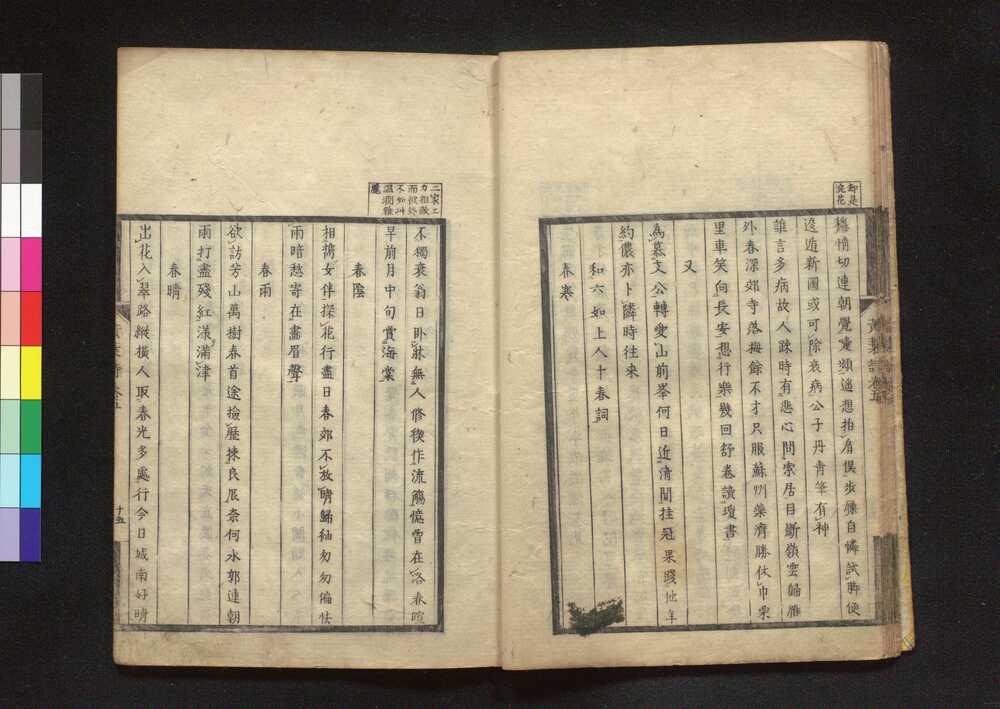 却是
浣花
情切連朝覺夢頻遙想拍肩俱步屧自憐試脚便
逡逅新圖或可除衰病公子丹青筆有神
誰言多病故人踈時有悲心問索居目斷嶺雲歸雁
外春深郊寺落梅餘不才只服蘇州藥濟勝仗巾柴
里車笑向長安想行樂幾回舒卷讀瓊書
又
為慕文公轉愛山前峯何日近清閒挂冠果踐他年
約儂亦卜隣時往來
和六如上人十春詞
春寒
二家工
力相敵
而彼終
不如此
溫潤
不獨衰翁日卧牀無人修禊作流觴憶曾在洛春暄
早前月中旬賞海棠
春陰
相携女伴探花行盡日春郊不放晴歸袖匆匆偏怯
雨暗愁寄在畫眉聲
春雨
欲訪芳山萬樹春首途撿歷揀良辰奈何水郭連朝
雨打盡殘紅漾滿津
春晴
出花入翠路縱橫人取春光多處行今日城南好晴
十五